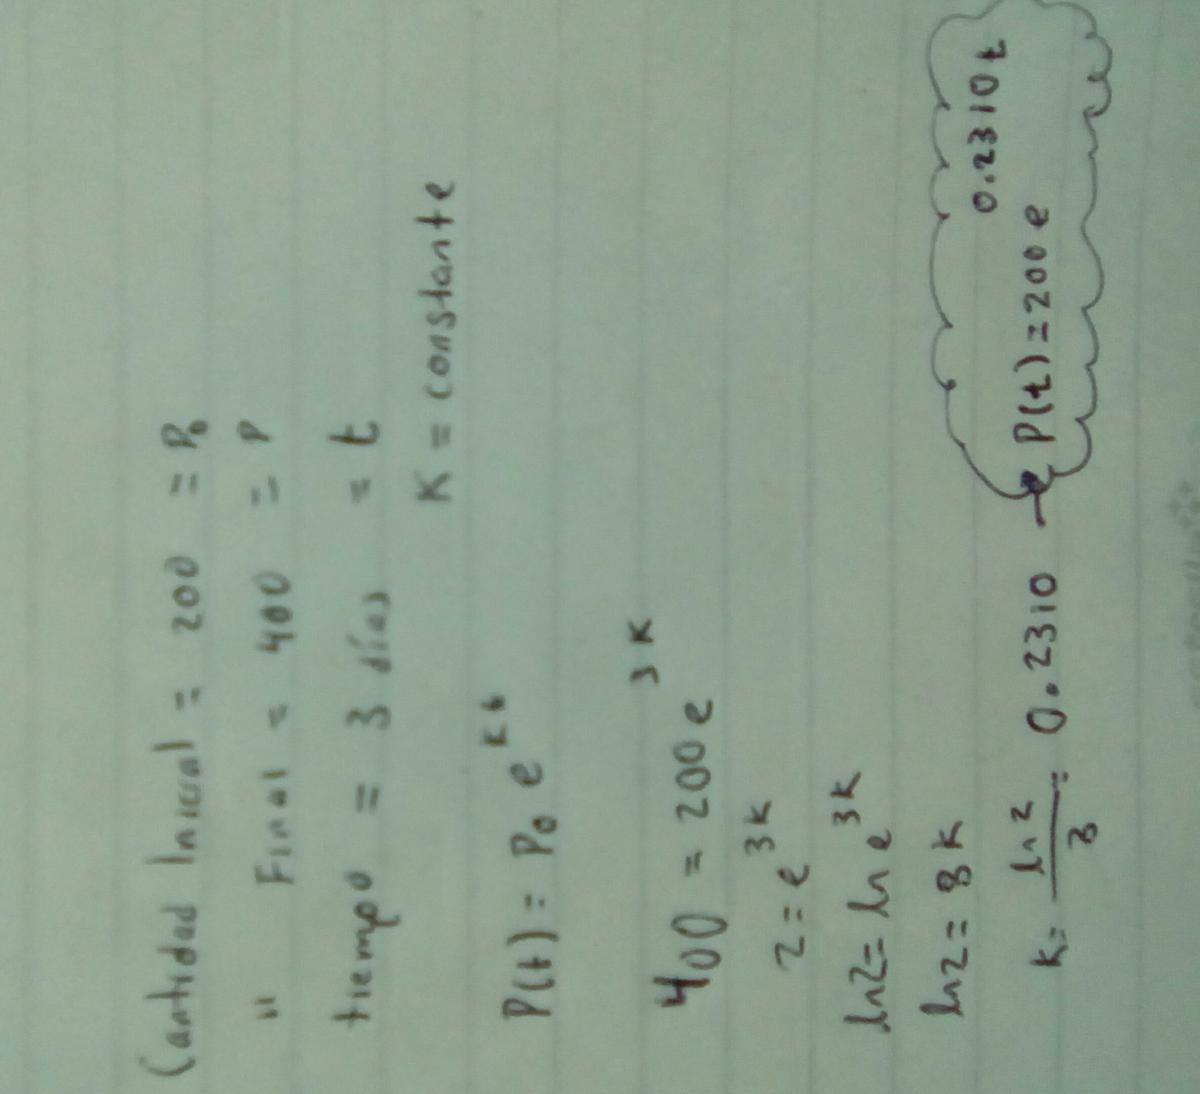 Cantidad Inicial = 200 = P₀
" Final = 400 = P
tiempo = 3 días = t
K = constante
P(t) = P₀ e^Kt
400 = 200 e^3K
2 = e^3K
ln2 = ln e^3K
ln2 = 3K
K = ln2/3 = 0.2310 → P(t) = 200 e^0.2310t